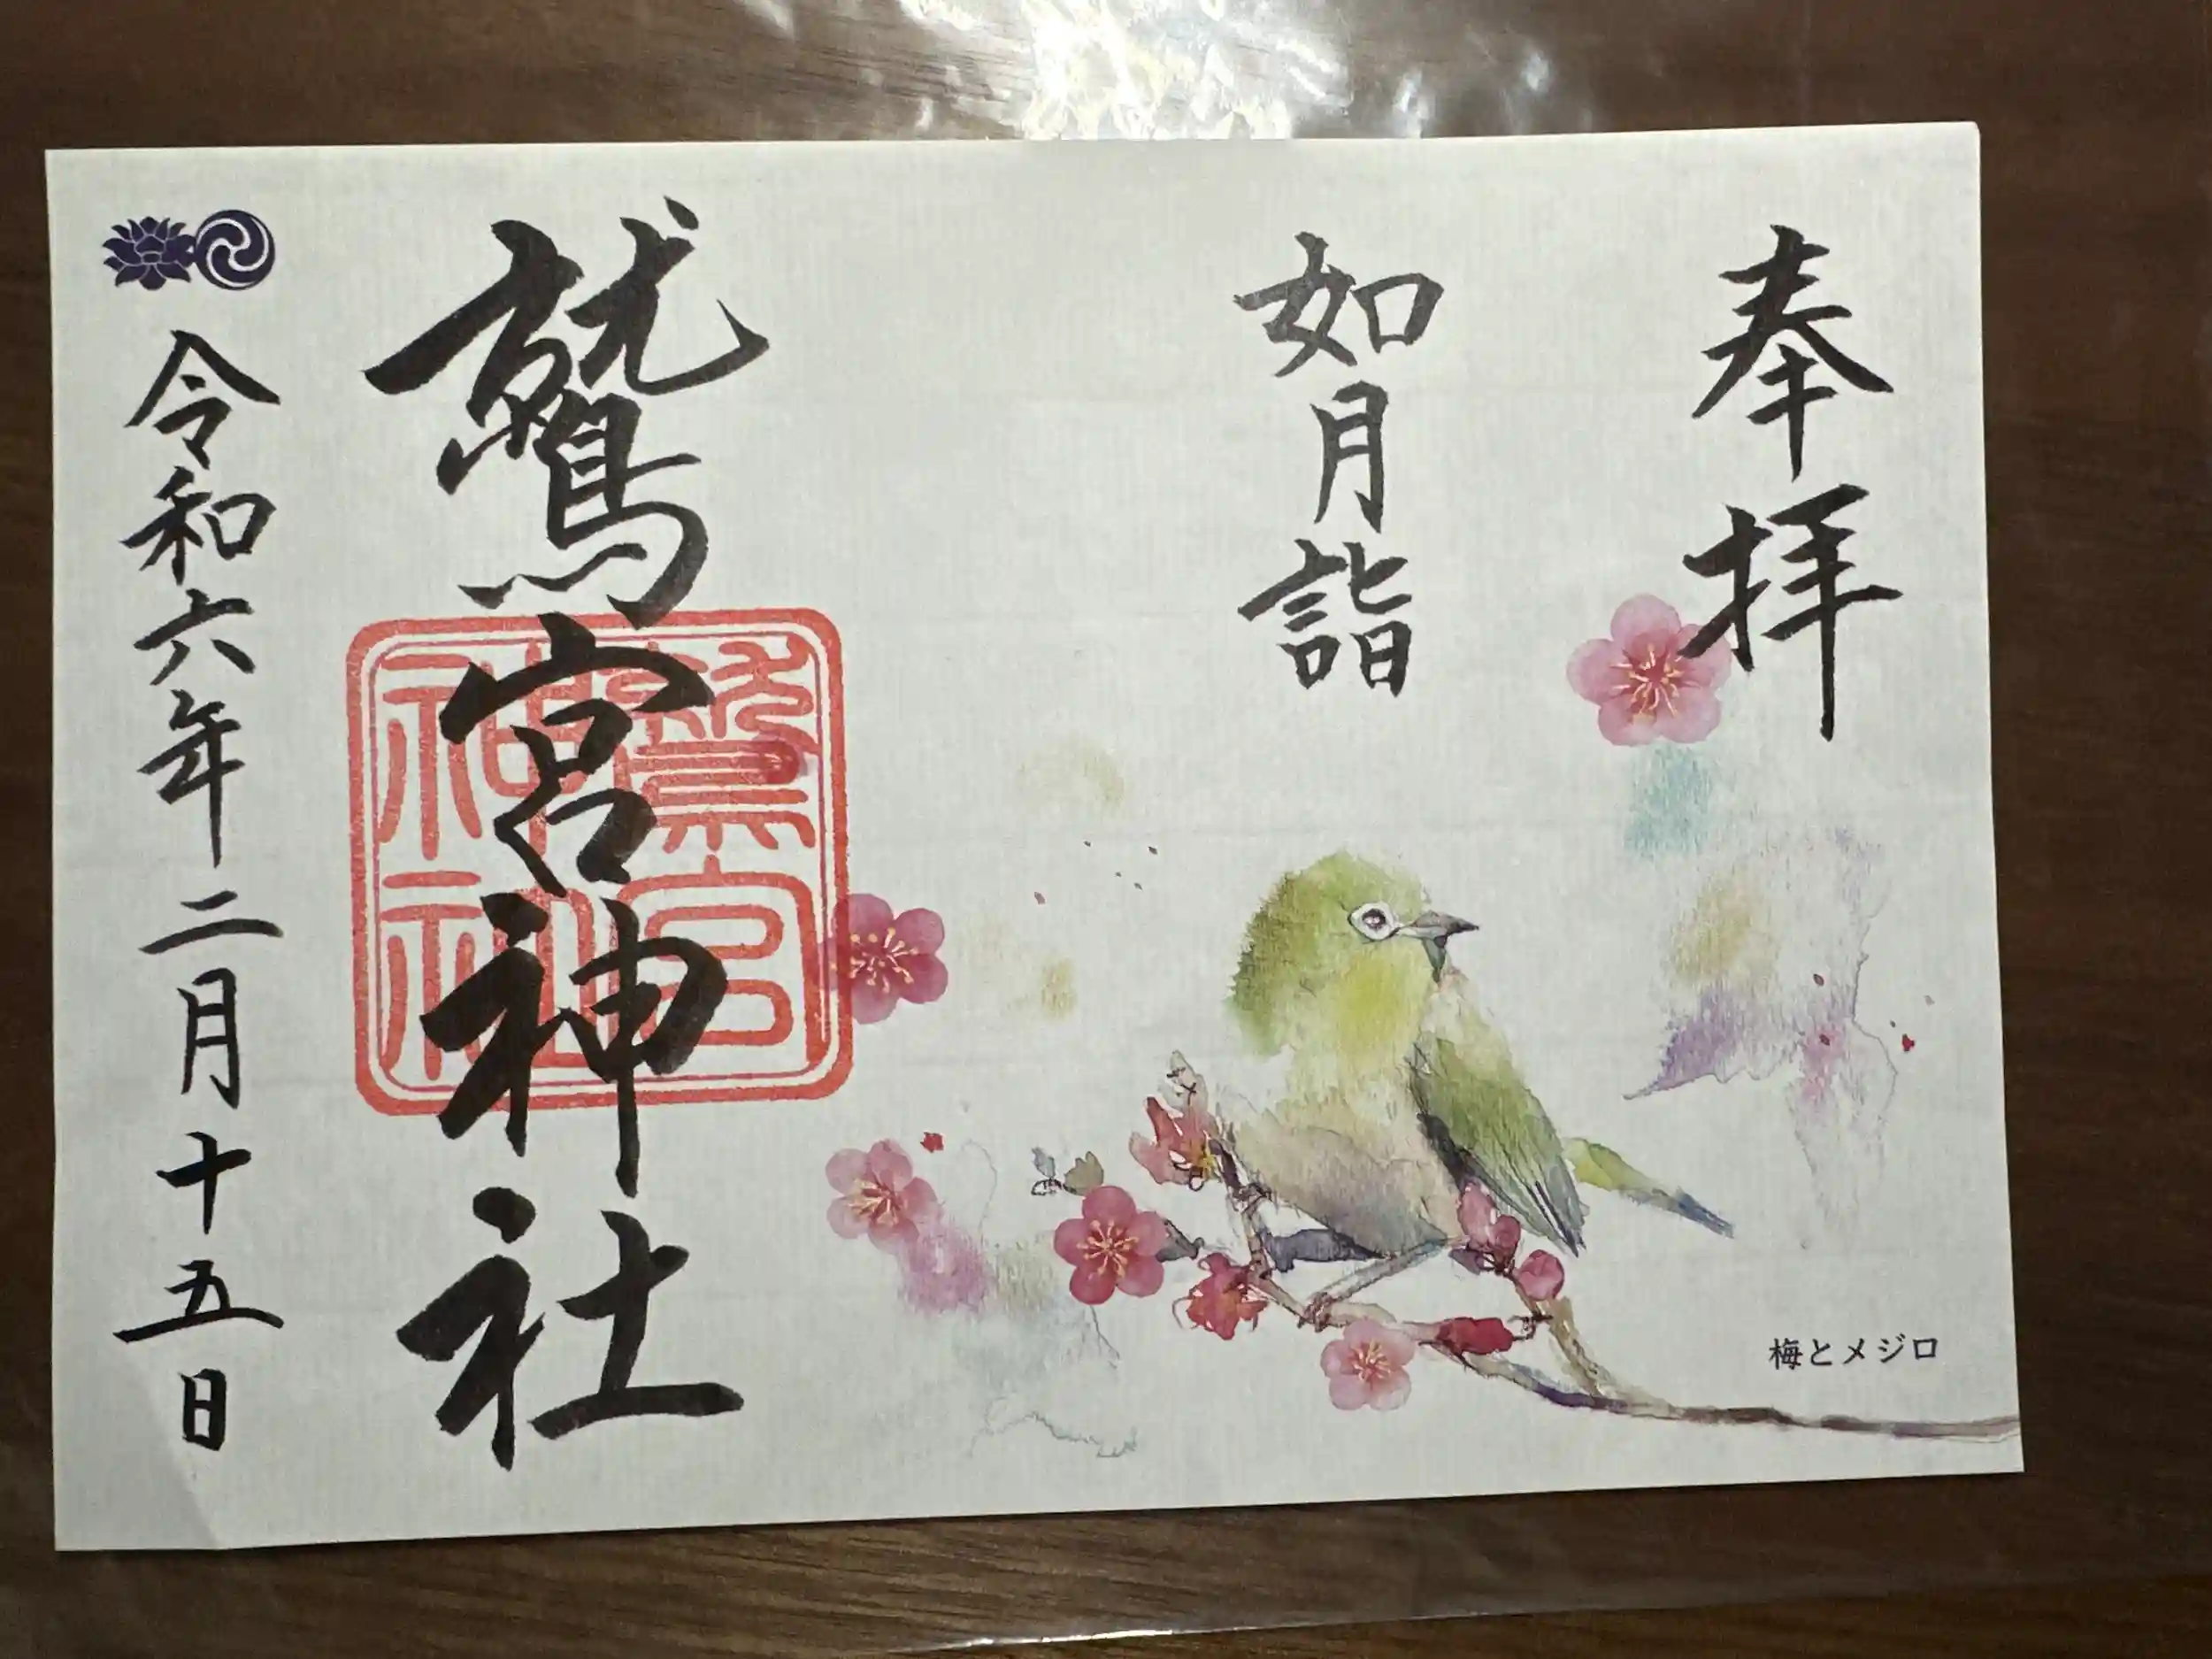 奉拝
如月詣
鷲宮神社
鷲宮
神社
令和六年二月十五日
梅とメジロ